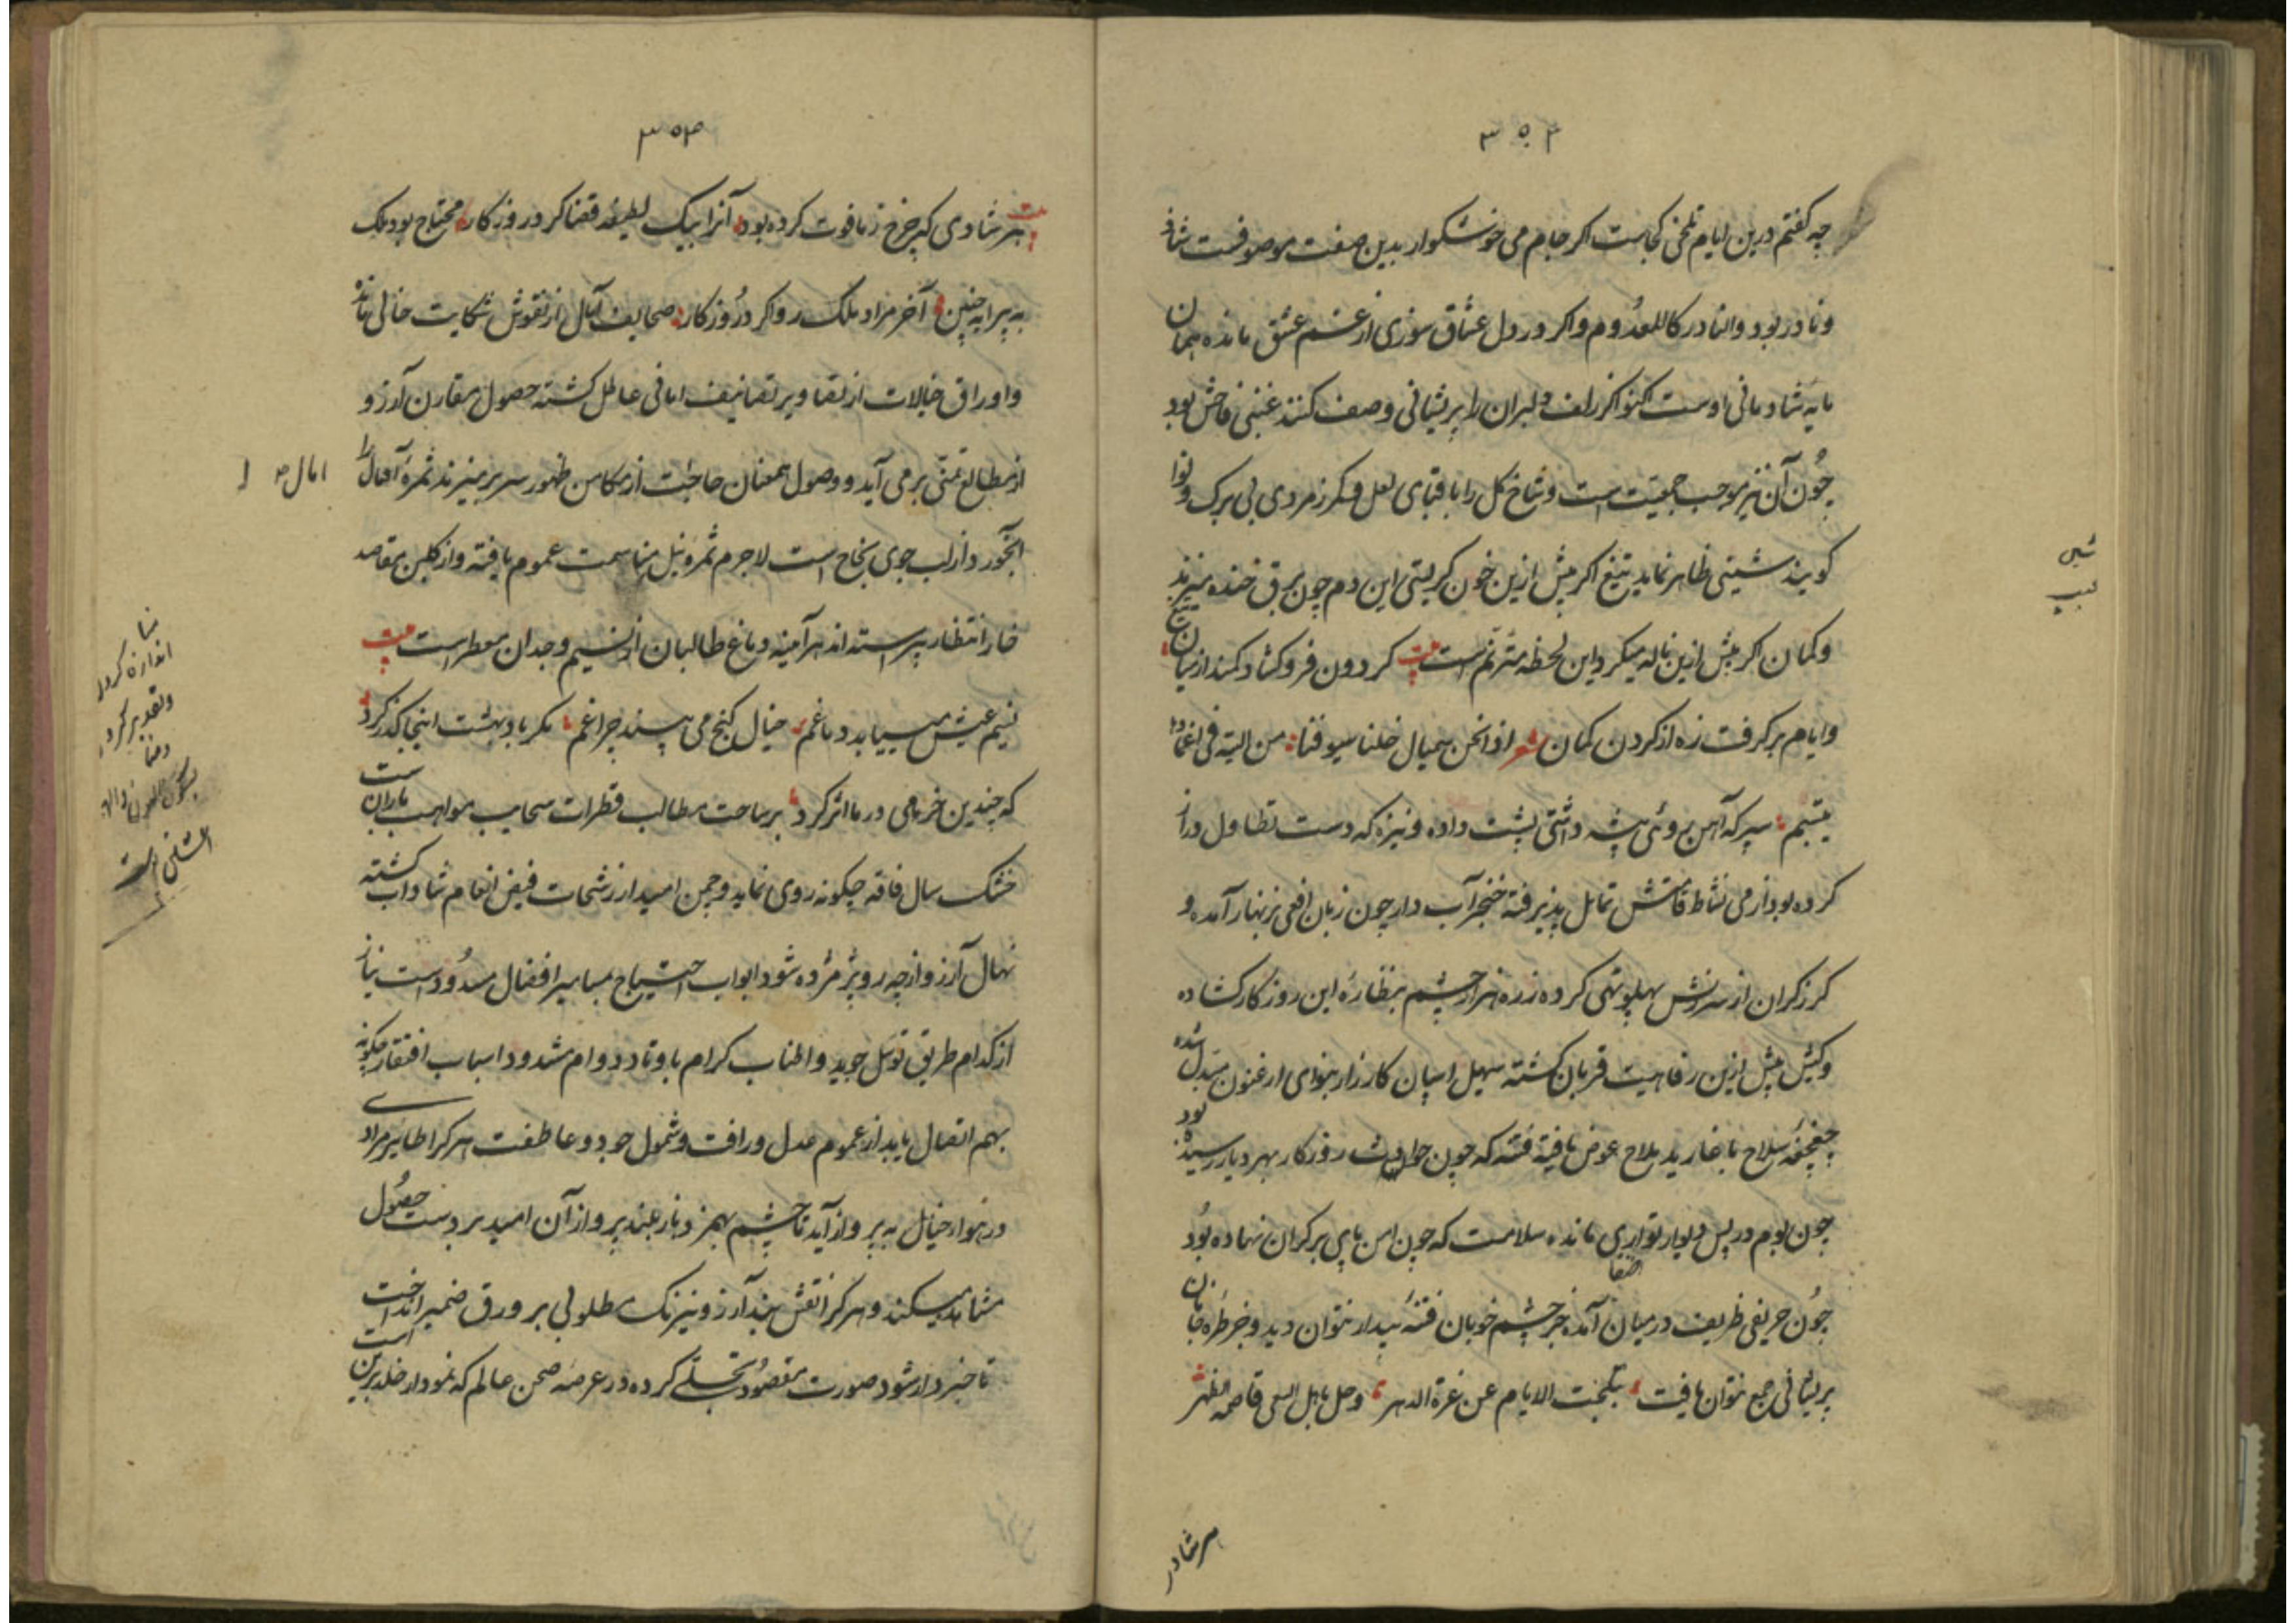 ۳۵۲
چه گفتم درین ایام تلخی کجاست اگر جام می خوشگوار بدین صفت موصوفست شاذ
و نادر بود والنادر کالمعدوم و اگر در دل عشاق سوزی از غم عشق مانده همان
مایه شادمانی اوست اکنو اگر زلف دلبران را پریشانی وصف کنند غبنی فاحش بود
چون آن نیز موجب جمعیت است و شاخ گل را با قبای لعل و کمر زمردی بی برک و نوا
گویند شینی ظاهر نماید تیغ اگر پیش ازین خون گریستی این دم چون برق خنده میزند
و کمان اگر پیش ازین ناله میکرد این لحظه مترنم است بیت گردون فرو گشاد کمند از میان تیغ
و ایام برگرفت زه از گردن کمان شعر من البته فی اغمادها
تبتسم سپر که آهن روئی پیشه داشتی پشت داده و نیزه که دست تطاول دراز
کرده بود از می نشاط قامتش تمایل پذیرفته خنجر آب دار چون زبان افعی بزنهار آمده و
گرز گران از سرزنش پهلو تهی کرده زره هزار چشم بنظارۀ این روزگار گشاده
و کیش پیش ازین رفاهیت قربان گشته صهیل اسپان کارزار بنوای ارغنون مبدل شده
سلاح باغارید ملاح عوض یافته فتنه که چون حوادث روزگار بهر دیار رسیده بود
چون بوم در پس دیوار تواری مانده سلامت که چون امن پای بر کران نهاده بود
چون حریفی ظریف در میان آمده جز چشم خوبان فتنۀ بیدار نتوان دید و جز طرۀ جانان
پریشانی جمع نتوان یافت الایام عن غرة الدهر وحل باهل البغی قاصمة الظهر
هر شادی
۳۵۳
بیت هر شادی که چرخ ز ما فوت کرده بود آنرا بیک لطیفه قضا کرد روزگار محتاج بود ملک
به پیرایه چنین آخر مراد ملک روا کرد روزگار صحایف آمال از نقوش شکایت خالی مانده
و اوراق خیالات از تصاویر تصانیف امانی عاطل گشته حصول مقارن آرزو
از مطالع تمنی بر می آید و وصول همعنان حاجت از مکامن ظهور سر بر میزند ثمرۀ آمال را
آبخور از لب جوی نجاح است لاجرم ثمر و نیل منا سمت عموم یافته و از گلبن مقاصد
خار انتظار پیراسته اند هر آینه دماغ طالبان از نسیم وجدان معطر است بیت
نسیم عیش میباید دماغم خیال گنج می بیند چراغم مگر باد بهشت اینجا گذر کرد
که چندین خرمی در ما اثر کرد بر ساحت مطالب قطرات سحایب مواهب باران است
خشک سال فاقه چگونه روی نماید و چمن امید از رشحات فیض انعام شاداب گشته
نهال آرزو از چه رو پژمرده شود ابواب احتیاج بمسامیر افضال مسدود است نیاز
از کدام طریق توسل جوید و اطناب کرام باوتاد دوام مشدود اسباب افتقار چگونه
بهم اتصال یابد از عموم عدل و رافت و شمول جود و عاطفت هر کرا طایر مراد
در هوای خیال به پرواز آید تا چشم بهم زد باز بلند پرواز آن امید بر دست حصول
مشاهده میکند و هر کرا نقش بند آرزو نیرنگ مطلوبی بر ورق ضمیر انداخت
تا خبردار شود صورت مقصود تجلی کرده در عرصۀ صحن عالم که نمودار خلد برین است
امال
منا
اندازه کردن
و تقدیر کردن